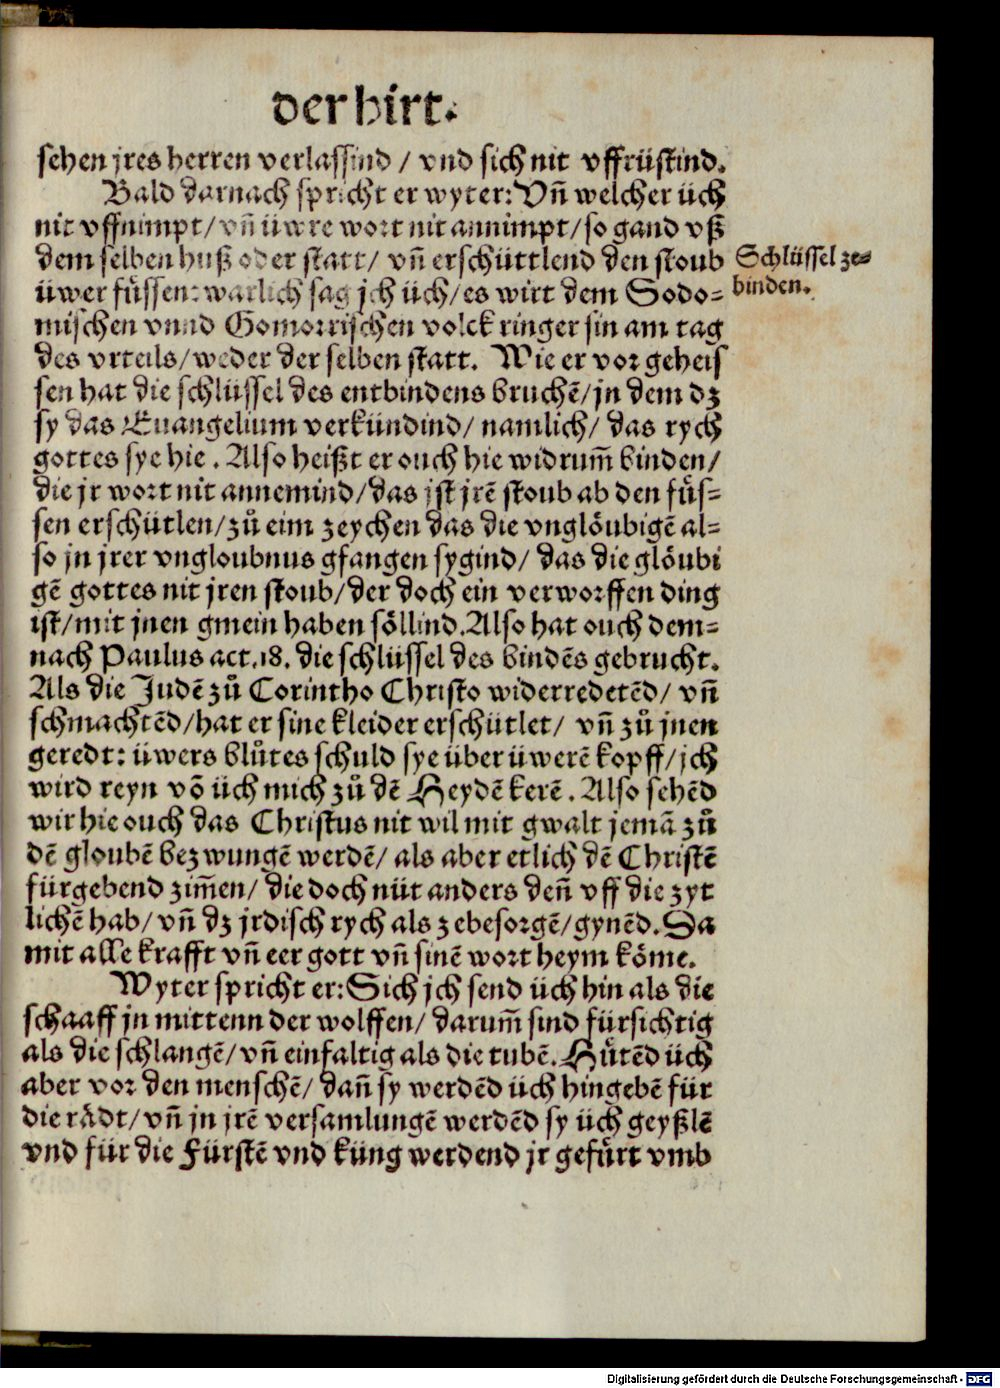 der hirt.
sehen jres herren verlassind / vnd sich nit vffrüstind.
Bald darnach spricht er wyter: Vñ welcher üch
nit vffnimpt / vñ üwre wort nit annimpt / so gand vß
dem selben huß oder statt / vñ erschüttlend den stoub
Schlüssel ze=
binden.
üwer füssen: warlich sag jch üch / es wirt dem Sodo=
mischen vnnd Gomorrischen volck ringer sin am tag
des vrteils / weder der selben statt. Wie er vor geheis
sen hat die schlüssel des entbindens bruchē / jn dem dz
sy das Euangelium verkündind / namlich / das rych
gottes sye hie. Also heißt er ouch hie widrum̄ binden /
die jr wort nit annemind / das jst jrē stoub ab den füs=
sen erschütlen / zů eim zeychen das die vnglöubigē al=
so jn jrer vngloubnus gfangen sygind / das die glöubi
gē gottes nit jren stoub / der doch ein verworffen ding
ist / mit jnen gmein haben söllind. Also hat ouch dem=
nach Paulus act. 18. die schlüssel des bindēs gebrucht.
Als die Judē zů Corintho Christo widerredetēd / vñ
schmachtēd / hat er sine kleider erschütlet / vñ zů jnen
geredt: üwers blůtes schuld sye über üwerē kopff / jch
wird reyn vō üch mich zů dē Heydē kerē. Also sehēd
wir hie ouch das Christus nit wil mit gwalt jemā zů
dē gloubē bezwungē werdē / als aber etlich dē Christē
fürgebend zim̄en / die doch nüt anders den̄ vff die zyt
lichē hab / vñ dz jrdisch rych als ze besorgē / gynēd. Da
mit alle krafft vñ eer gott vñ sinē wort heym köme.
Wyter spricht er: Sich jch send üch hin als die
schaaff jn mittenn der wolffen / darum̄ sind fürsichtig
als die schlangē / vñ einfaltig als die tubē. Hůtēd üch
aber vor den menschē / dan̄ sy werdēd üch hingebē für
die rädt / vñ jn jrē versamlungē werdēd sy üch geyßlē
vnd für die Fürstē vnd küng werdend jr gefůrt vmb
Digitalisierung gefördert durch die Deutsche Forschungsgemeinschaft - DFG